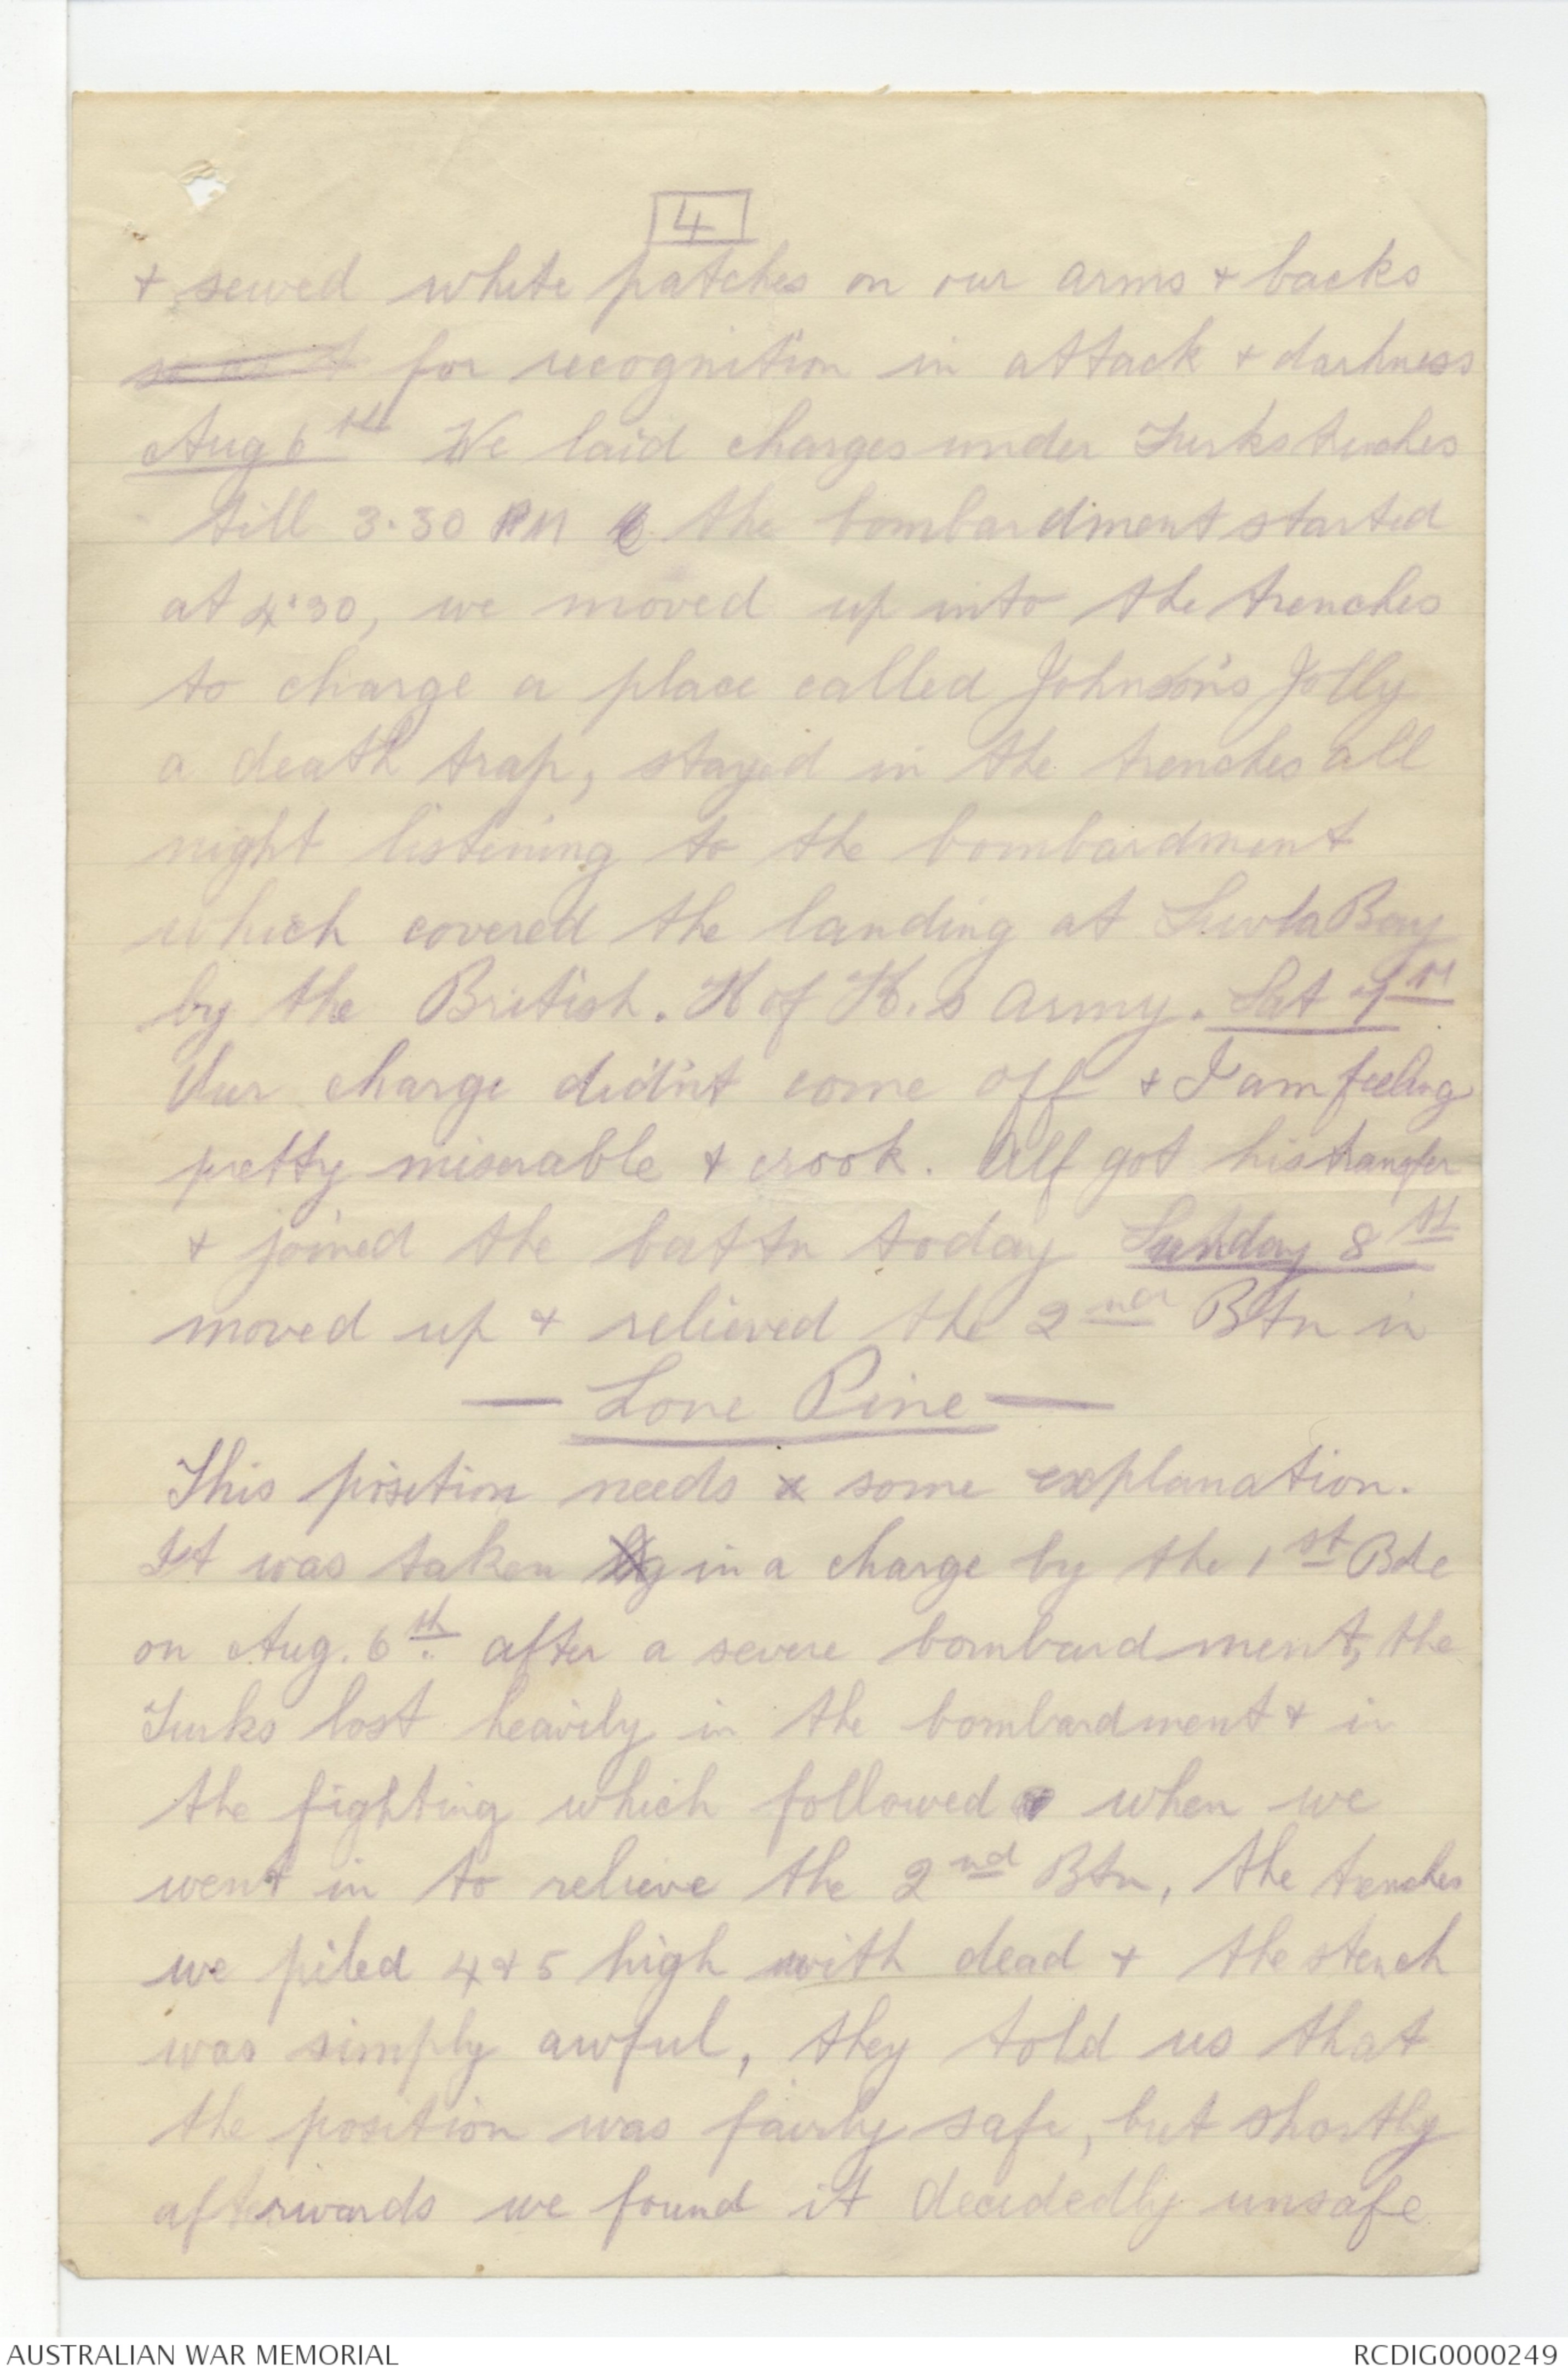 4
+ sewed white patches on our arms + backs
so as t for recognition in attack + darkness
Aug 6th We laid charges under Turks trenches
till 3.30 PM the bombardment started
at 4.30, we moved up into the trenches
to charge a place called Johnson's Jolly
a death trap, stayed in the trenches all
night listening to the bombardment
which covered the landing at Suvla Bay
by the British. K of K.s Army. Sat 7th
Our charge didn't come off + I am feeling
pretty miserable + crook. Alf got his transfer
+ joined the battn today Sunday 8th
moved up + relieved the 2nd Btn in
— Lone Pine —
This position needs some explanation.
It was taken by in a charge by the 1st Bde
on Aug. 6th after a severe bombardment, the
Turks lost heavily in the bombardment + in
the fighting which followed when we
went in to relieve the 2nd Btn, the trenches
we piled 4 + 5 high with dead + the stench
was simply awful, they told us that
the position was fairly safe, but shortly
afterwards we found it decidedly unsafe
AUSTRALIAN WAR MEMORIAL
RCDIG0000249